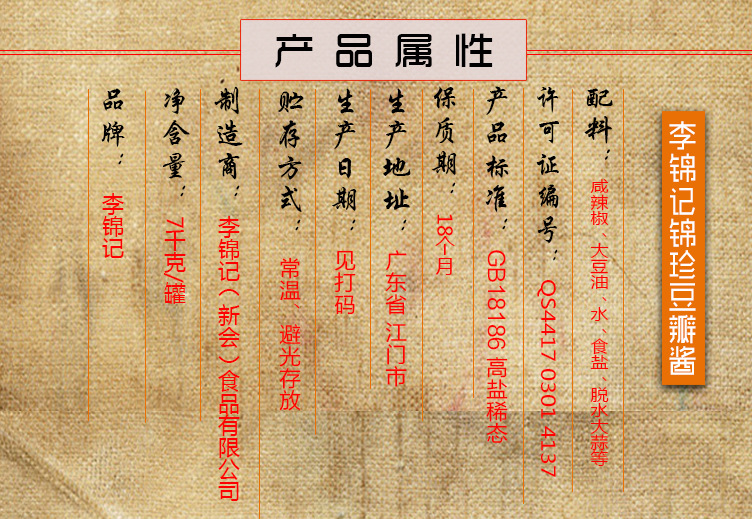 产品属性
李锦记锦珍豆瓣酱
配料：咸辣椒、大豆油、水、食盐、脱水大蒜等
许可证编号：QS4417 0301 4137
产品标准：GB18186 高盐稀态
保质期：18个月
生产地址：广东省 江门市
生产日期：见打码
贮存方式：常温、避光存放
制造商：李锦记（新会）食品有限公司
净含量：7千克/罐
品牌：李锦记